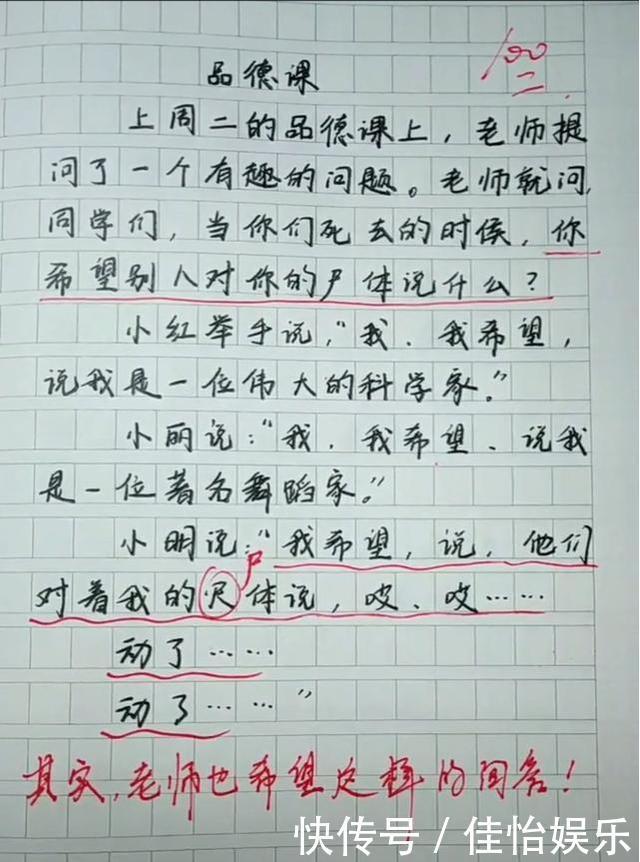 100
品德课
上周二的品德课上，老师提
问了一个有趣的问题。老师就问，
同学们，当你们死去的时候，你
希望别人对你的尸体说什么？
小红举手说，“我．我希望，
说我是一位伟大的科学家。”
小丽说：“我．我希望、说我
是一位著名舞蹈家。”
小明说：“我希望，说，他们
尸
对着我的尺体说，哎、哎……
动了……
动了……”
其实，老师也希望这样的回答！
快传号 / 佳怡娱乐